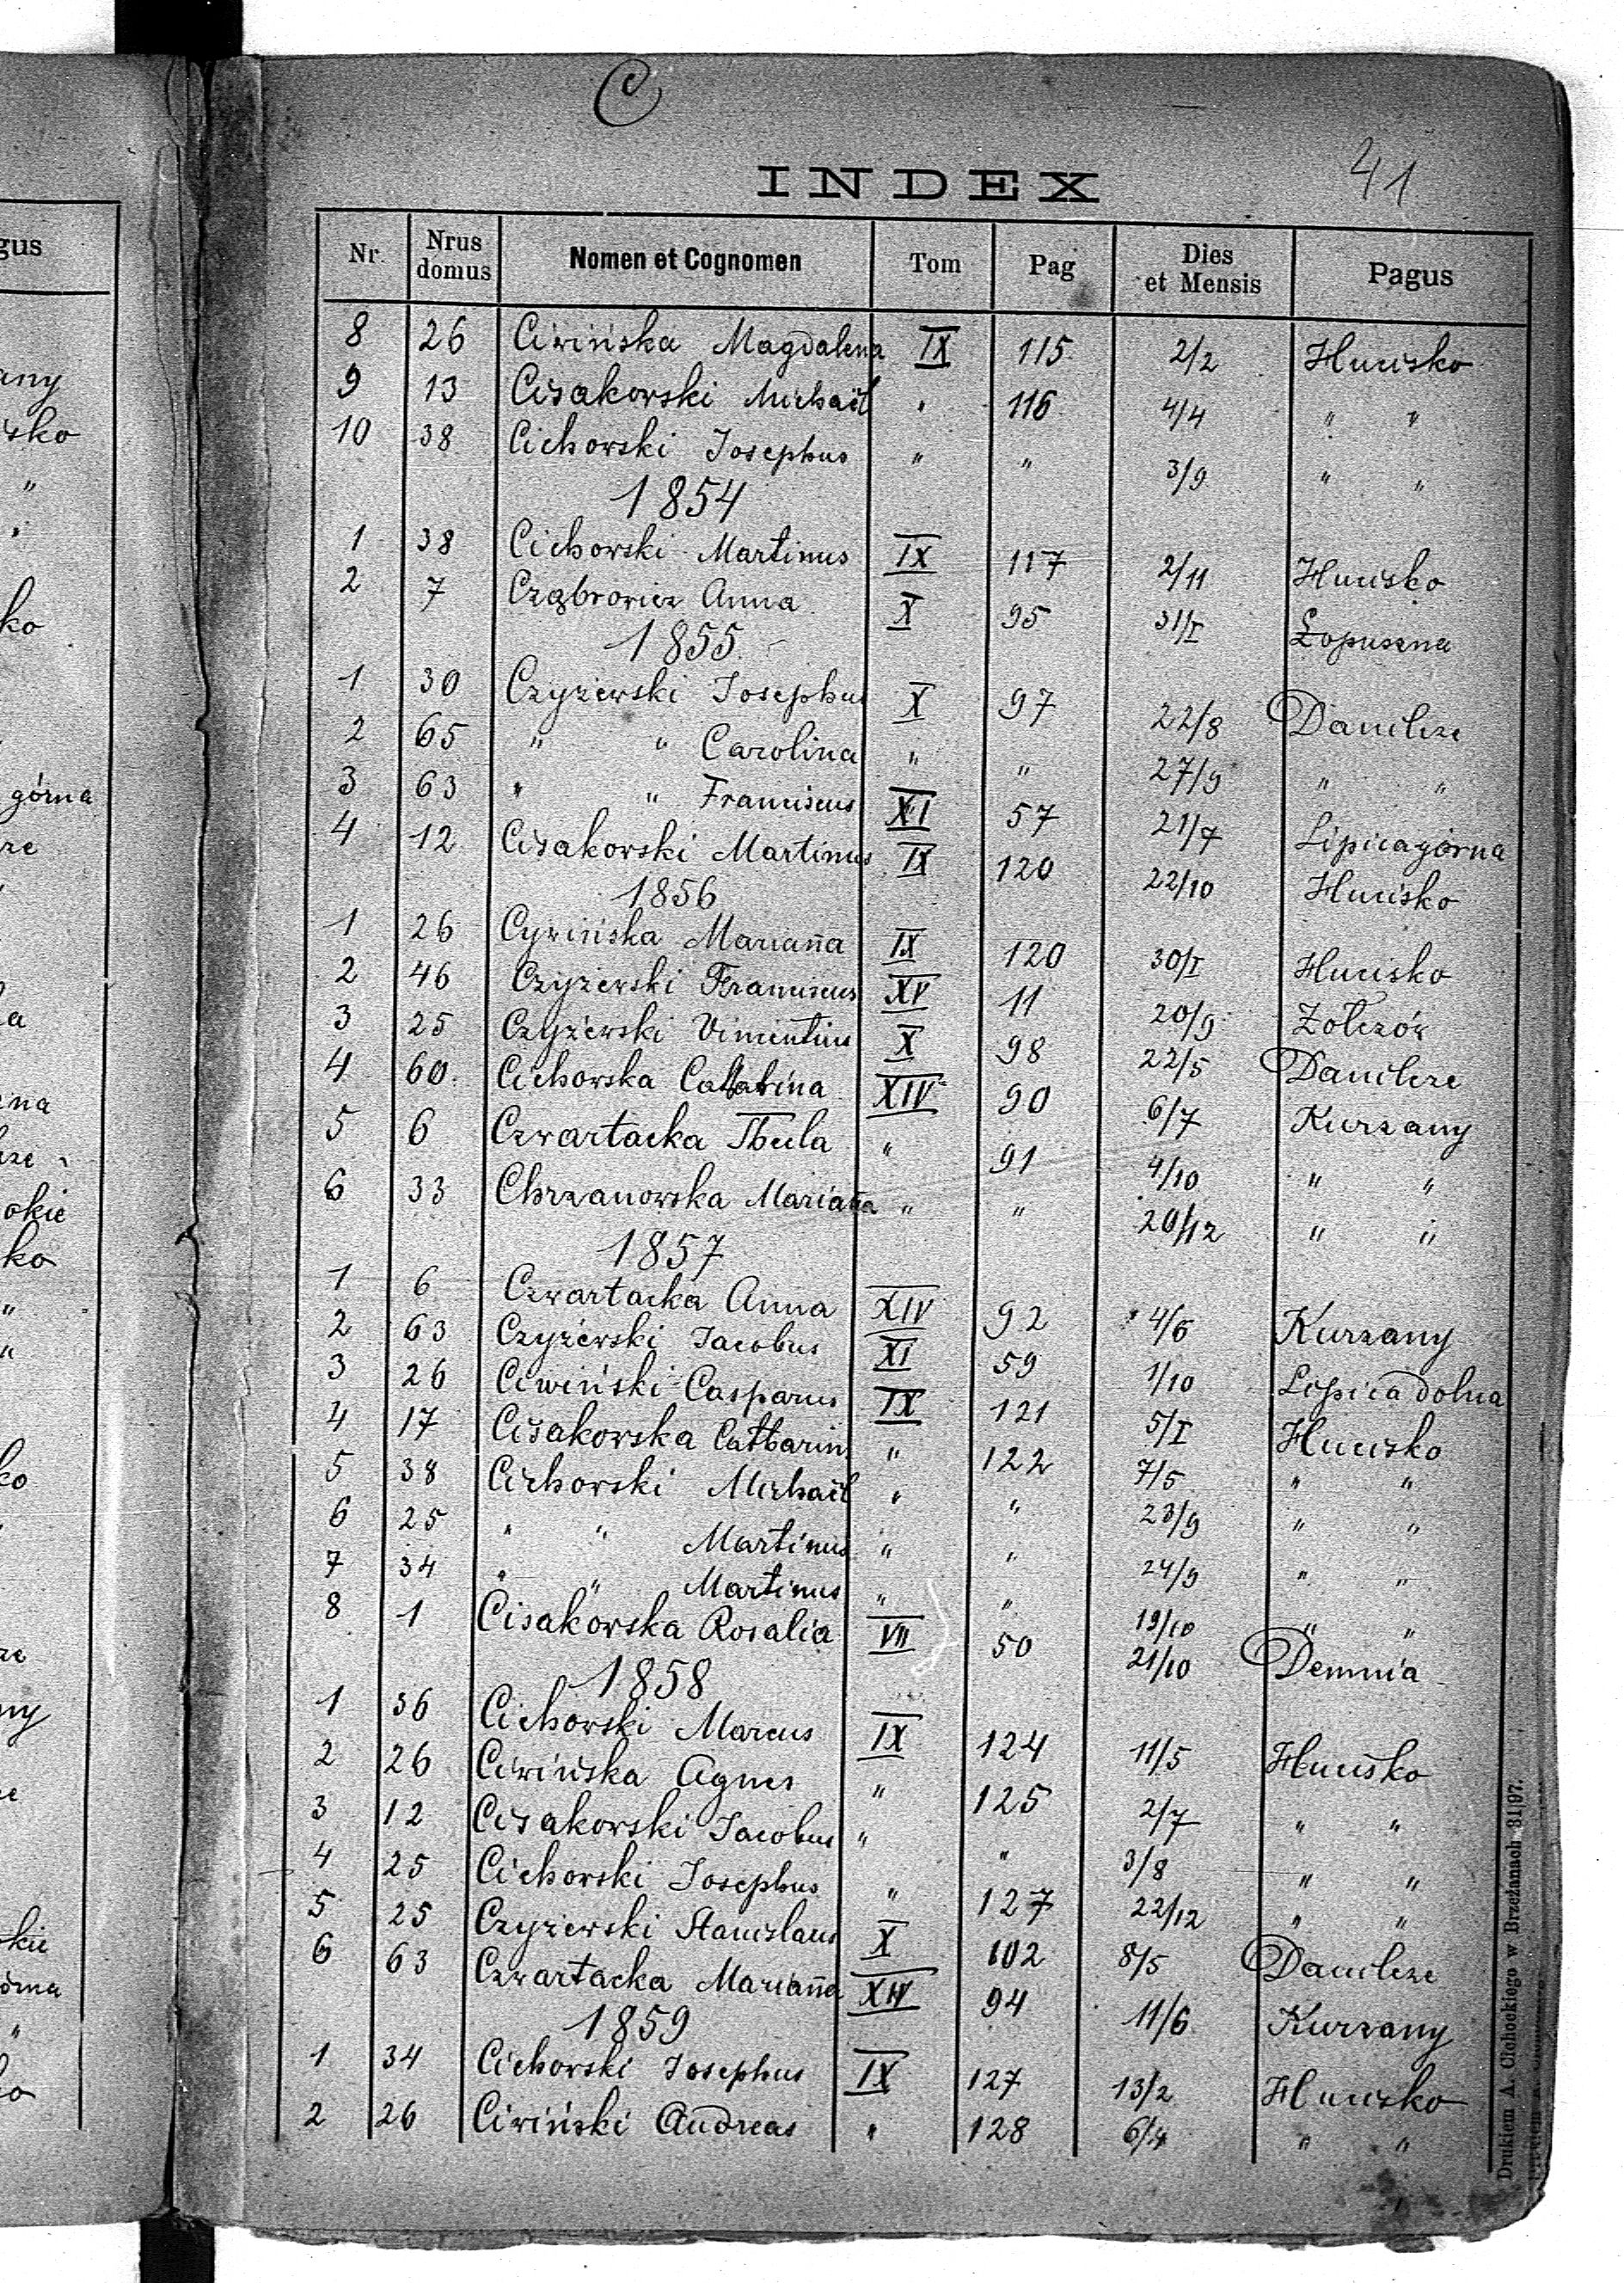 C
41
INDEX
Nr. Nrus domus Nomen et Cognomen Tom Pag Dies et Mensis Pagus
8 26 Ciwińska Magdalena IX 115 2/2 Hucisko
9 13 Cisakowski Michaël " 116 4/4 " "
10 38 Cichowski Josephus " " 3/9 " "
1854
1 38 Cichowski Martinus IX 117 2/11 Hucisko
2 7 Cząbrowicz Anna X 95 31/I Łopuszna
1855
1 30 Czyżewski Josephus X 97 22/8 Danilcze
2 65 " " Carolina " " 27/9 " "
3 63 " " Franciscus XI 57 21/7 Lipica górna
4 12 Cisakowski Martinus IX 120 22/10 Hucisko
1856
1 26 Cywińska Marianna IX 120 30/I Hucisko
2 46 Czyżewski Franciscus XV 11 20/9 Żołczów
3 25 Czyżewski Vincentius X 98 22/5 Danilcze
4 60 Cichowska Catharina XIV 90 6/7 Kurzany
5 6 Czwartacka Thecla " 91 4/10 " "
6 33 Chrzanowska Marianna " " 20/12 " "
1857
1 6 Czwartacka Anna XIV 92 4/6 Kurzany
2 63 Czyżewski Jacobus XI 59 1/10 Lipica dolna
3 26 Ciwiński Casparus IX 121 5/I Hucisko
4 17 Cisakowska Catharin " 122 7/5 " "
5 38 Cichowski Michaël " " 23/9 " "
6 25 " " Martinus " " 24/9 " "
7 34 " " Martinus " " 19/10 " "
8 1 Cisakowska Rosalia VII 50 21/10 Demnia
1858
1 36 Cichowski Marcus IX 124 11/5 Hucisko
2 26 Ciwińska Agnes " 125 2/7 " "
3 12 Cisakowski Jacobus " " 3/8 " "
4 25 Cichowski Josephus " 127 22/12 " "
5 25 Czyżewski Stanislaus X 102 8/5 Danilcze
6 63 Czwartacka Marianna XIV 94 11/6 Kurzany
1859
1 34 Cichowski Josephus IX 127 13/2 Hucisko
2 26 Ciwiński Andreas " 128 6/4 " "
Drukiem A. Cichockiego w Brzeżanach 31|97.